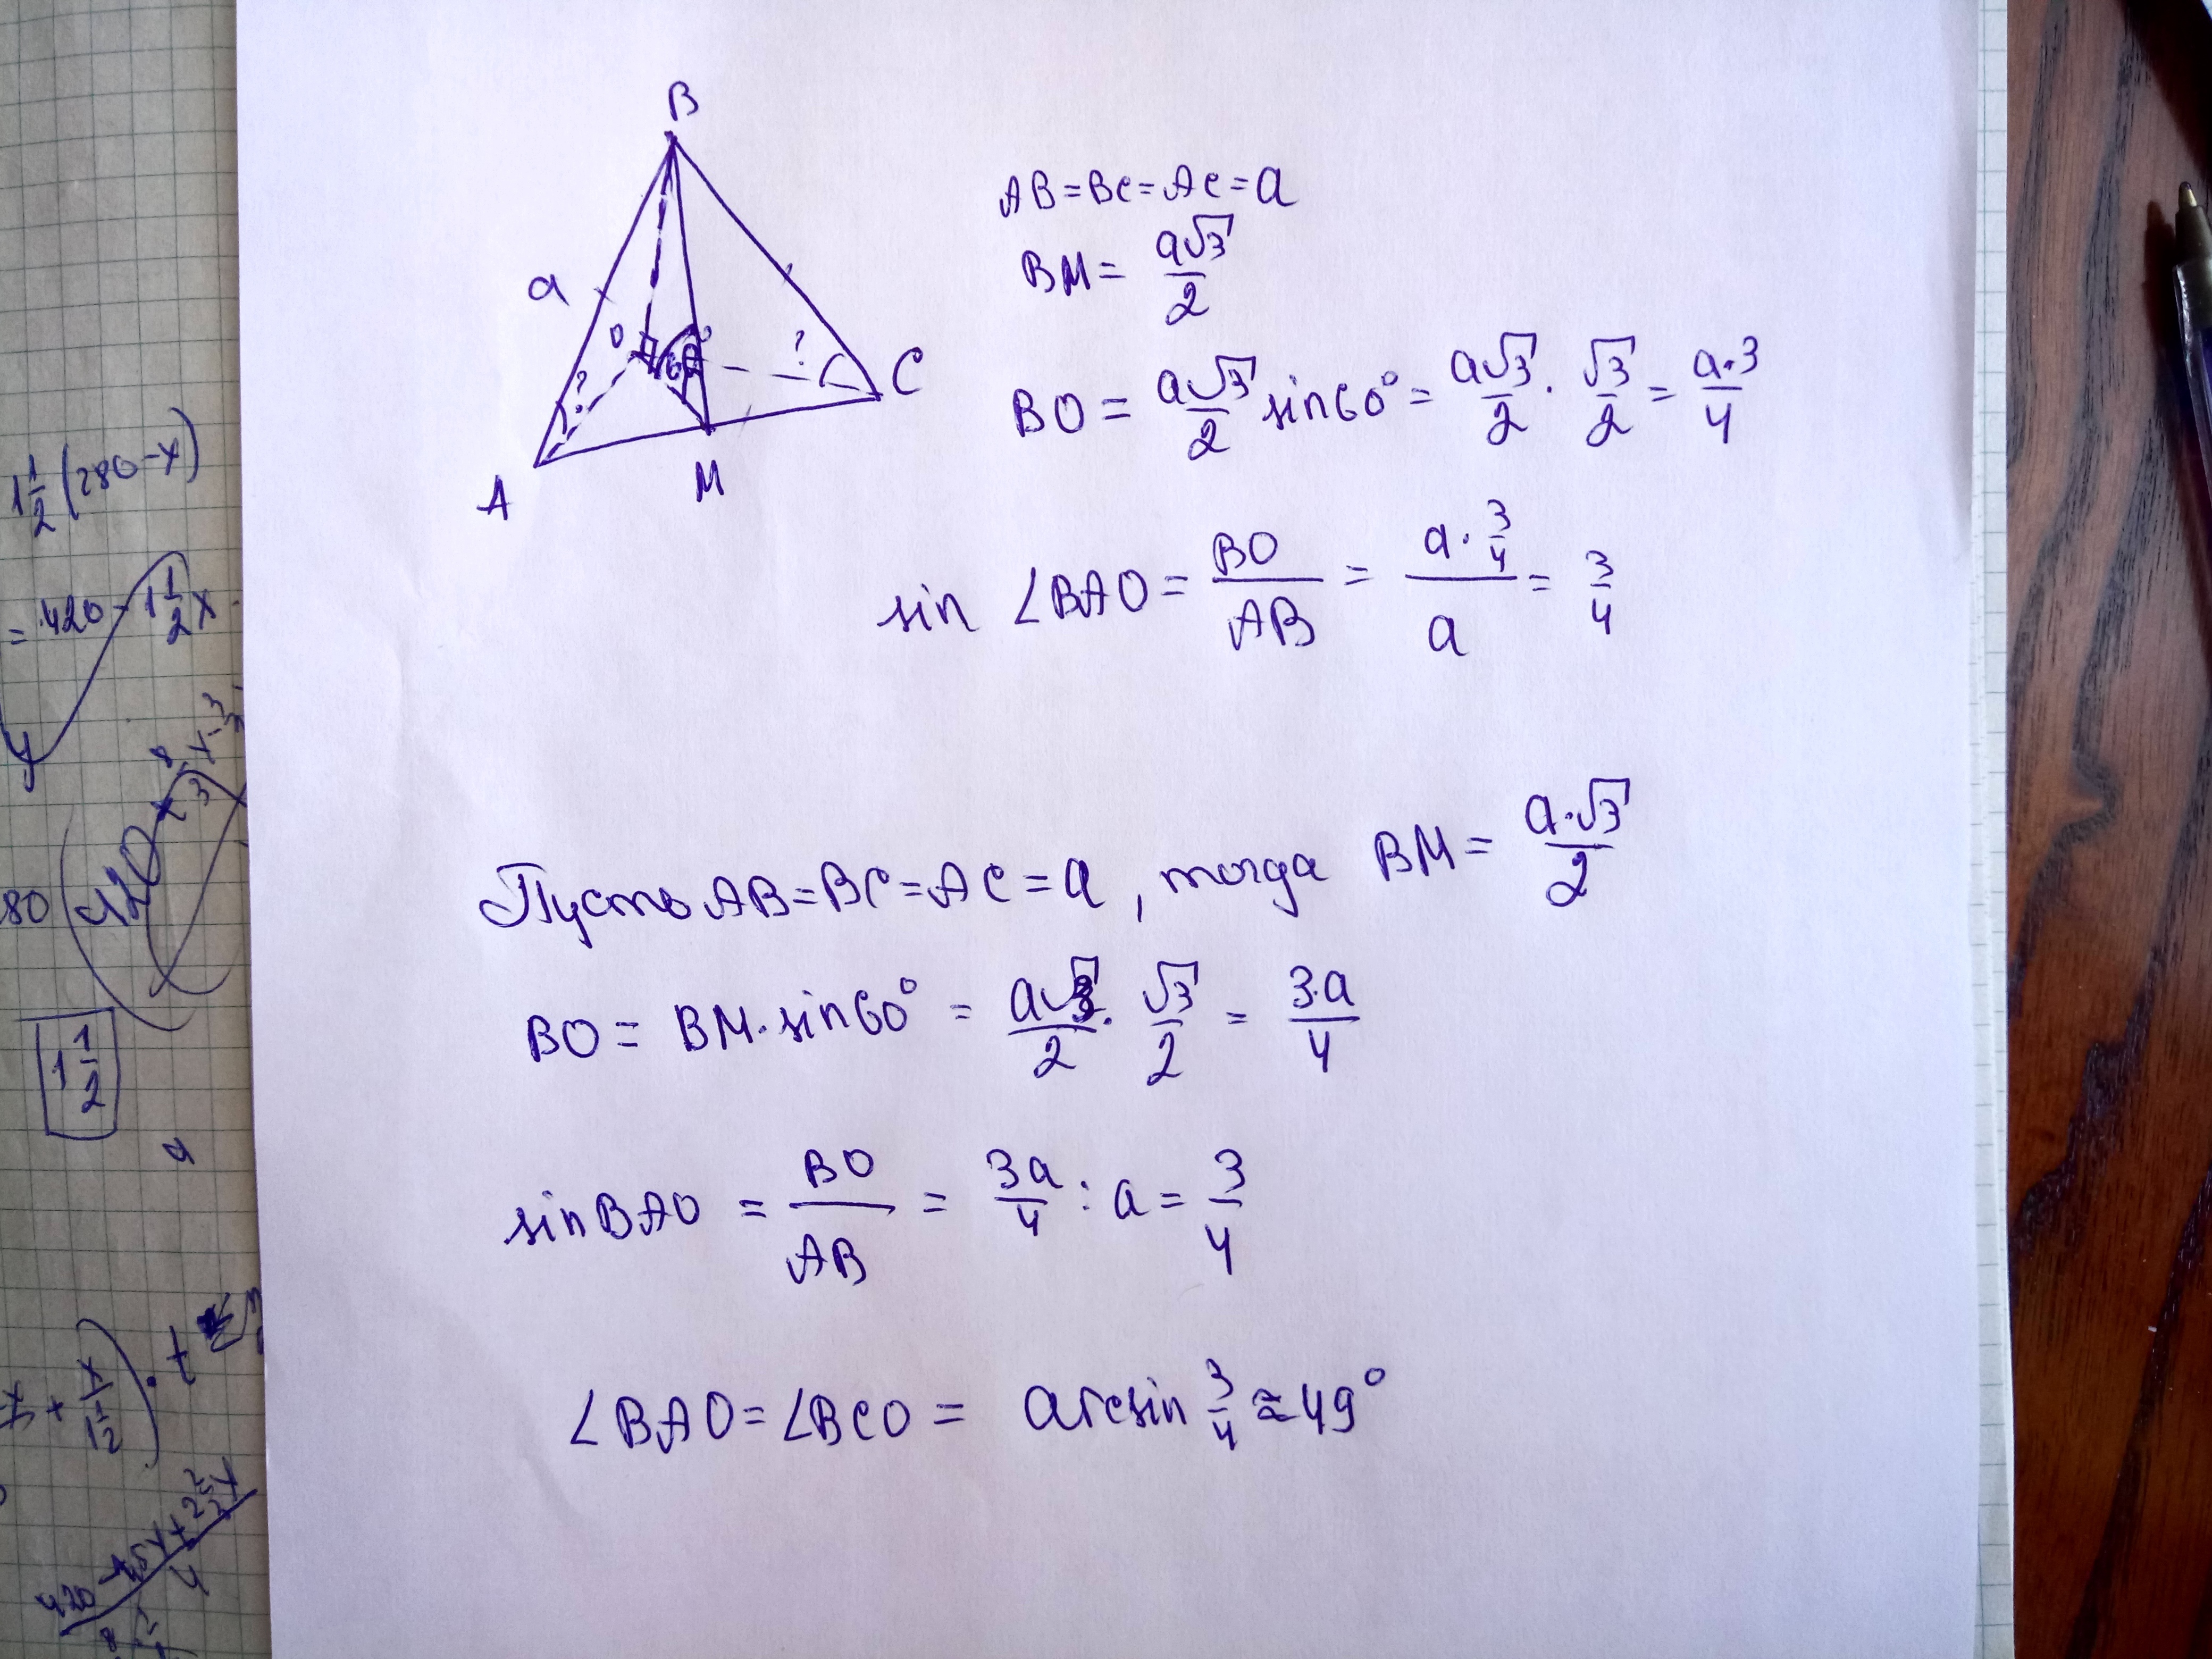 B
a
O
?
60°
?
C
A
M
AB=BC=AC=a
BM= a√3/2
BO= a√3/2 sin60°= a√3/2 · √3/2 = a·3/4
sin ∠BAO= BO/AB = a·3/4 / a = 3/4
Пусть AB=BC=AC=a, тогда BM= a·√3/2
BO= BM·sin60° = a√3/2 · √3/2 = 3·a/4
sinBAO = BO/AB = 3a/4 : a = 3/4
∠BAO=∠BCO = arcsin 3/4 ≈ 49°
1 1/2 (280-x)
= 420 - 1 1/2 x
y
80
420
1 1/2
a
420
4